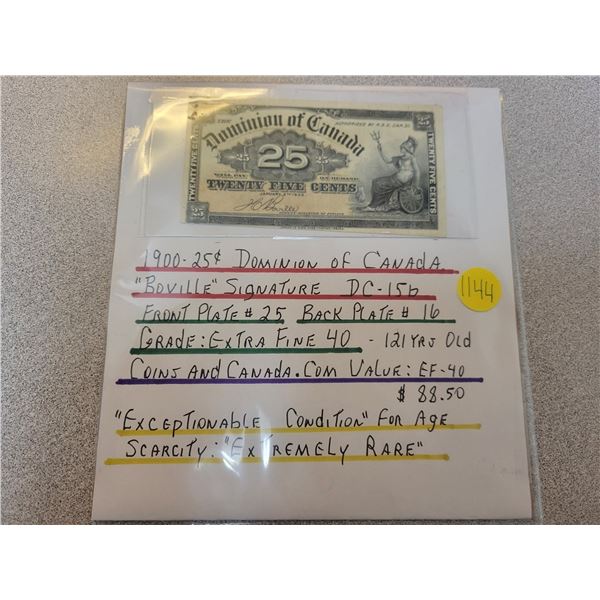 AUTHORIZED BY R.S.C. CAP. 31
Dominion of Canada
25 25 25
WILL PAY ON DEMAND
TWENTY FIVE CENTS
25
TWENTY FIVE CENTS
TWENTY FIVE CENTS
1900-25¢ DOMINION OF CANADA
"BOVILLE" SIGNATURE DC-15b
1144
FRONT PLATE # 25 BACK PLATE # 16
GRADE: EXTRA FINE 40 - 121 YRS Old
COINS AND CANADA.COM VALUE: EF-40
$ 88.50
"EXCEPTIONABLE CONDITION" FOR AGE
SCARCITY: "EXTREMELY RARE"